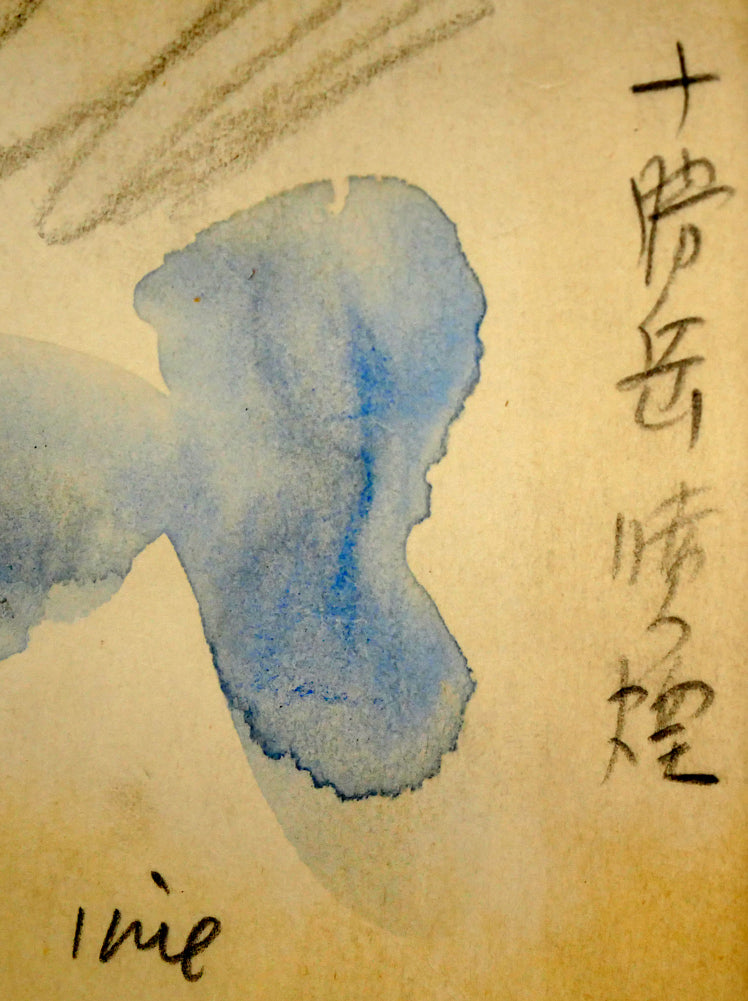 十勝岳噴煙